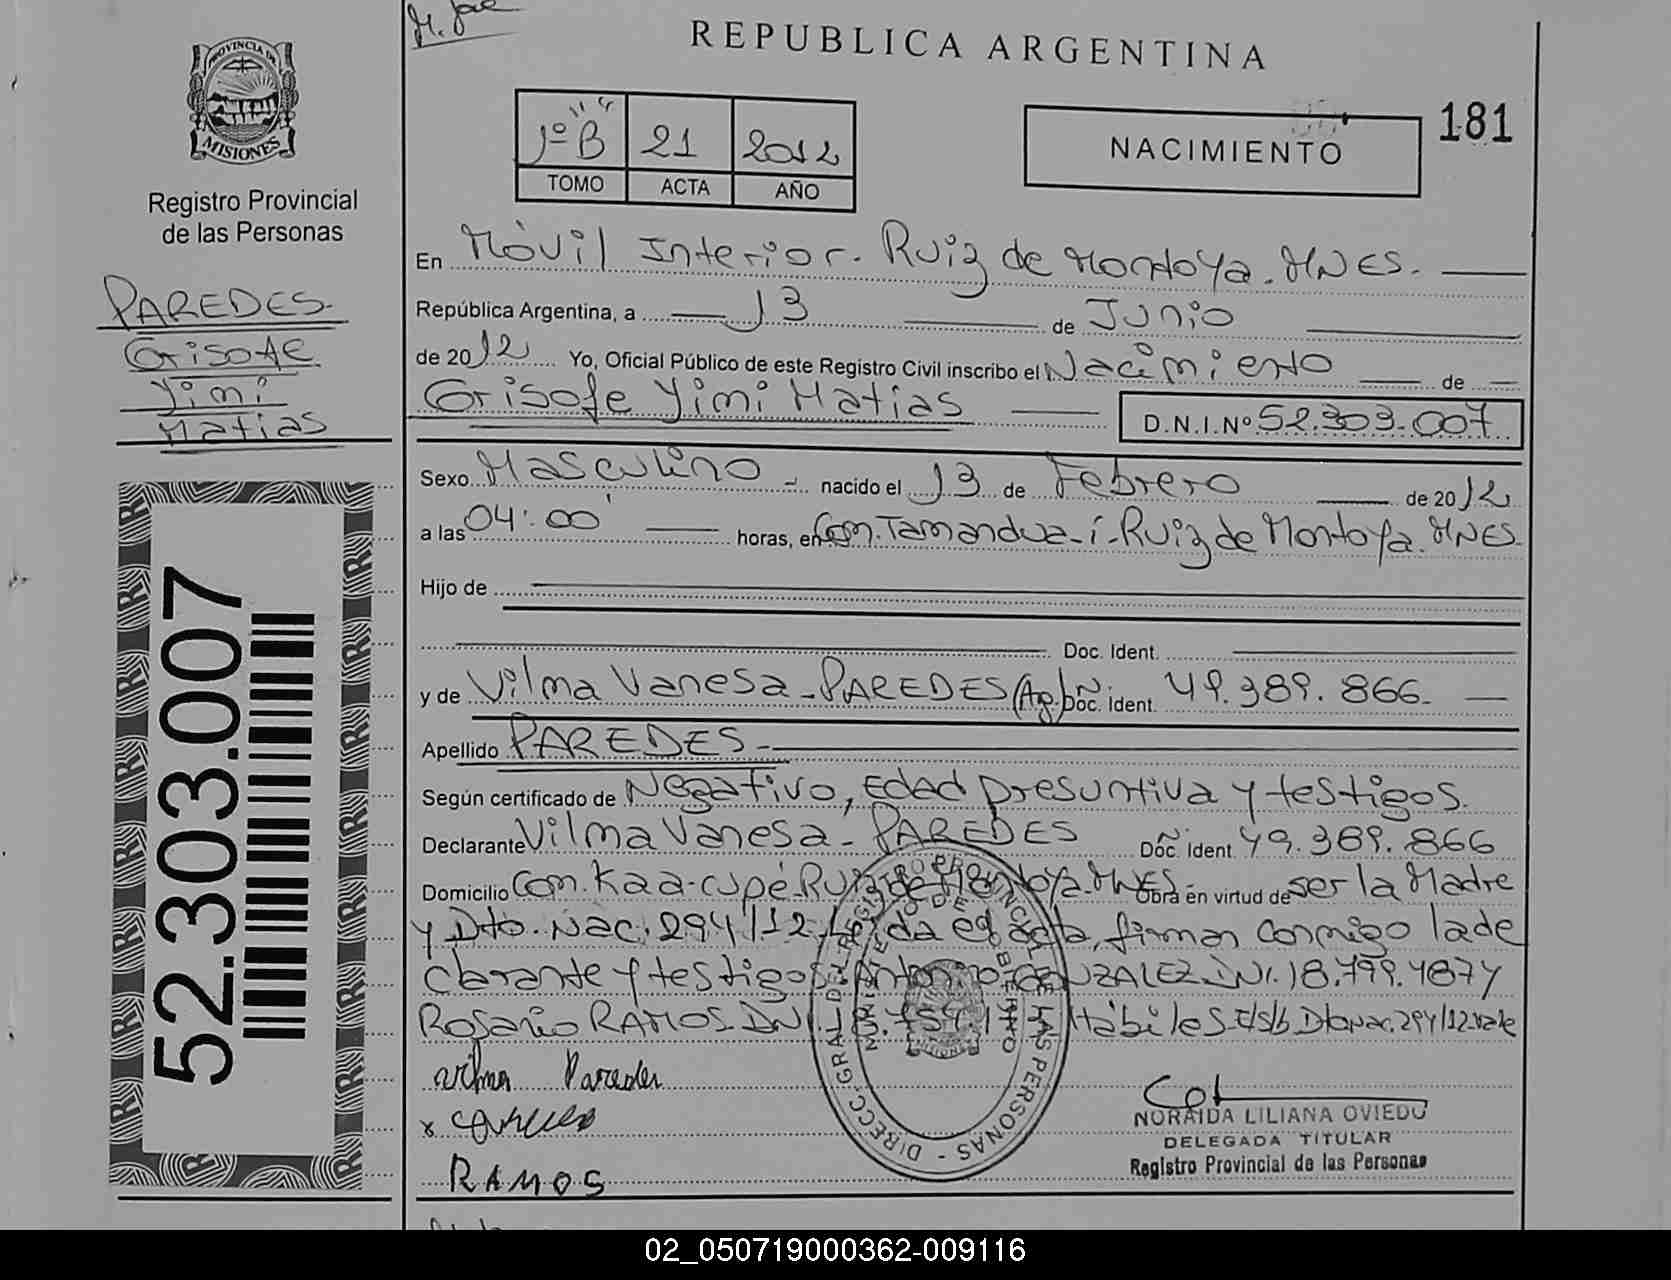 M. José
REPUBLICA ARGENTINA
PROVINCIA DE
MISIONES
Registro Provincial
de las Personas
1º "B" 21 2012
TOMO ACTA AÑO
NACIMIENTO
181
PAREDES.
Grisofe
Yimi
Matias
En Móvil Interior. Ruiz de Montoya. MNES.
República Argentina, a 13 de Junio
de 2012 Yo, Oficial Público de este Registro Civil inscribo el Nacimiento de
Grisofe Yimi Matias D.N.I.Nº 52.303.007
Sexo Masculino nacido el 13 de Febrero de 2012
a las 04:00 horas, en Com. Tamandua-í-Ruiz de Montoya. MNES.
Hijo de
Doc. Ident.
y de Vilma Vanesa - PAREDES (Arg.) Doc. Ident. 49.389.866.
Apellido PAREDES-
Según certificado de Negativo, Edad presuntiva y testigos.
Declarante Vilma Vanesa - PAREDES Doc. Ident. 49.389.866
Domicilio Com. Kaa-cupé Ruiz de Montoya. MNES Obra en virtud de ser la Madre
y Dto. Nac. 294/12 Leída el acta, firman conmigo la de
clarante y testigos Antonio GONZALEZ DNI. 18.799.487 y
Rosario RAMOS. DNI. hábiles E/s/b Dto Nac. 294/12 vale
vilma Paredes
x
RAMOS
DIRECC. GRAL. DEL REGISTRO PROVINCIAL DE LAS PERSONAS
MINISTERIO DE GOBIERNO
MISIONES
NORAIDA LILIANA OVIEDO
DELEGADA TITULAR
Registro Provincial de las Personas
52.303.007
02_050719000362-009116